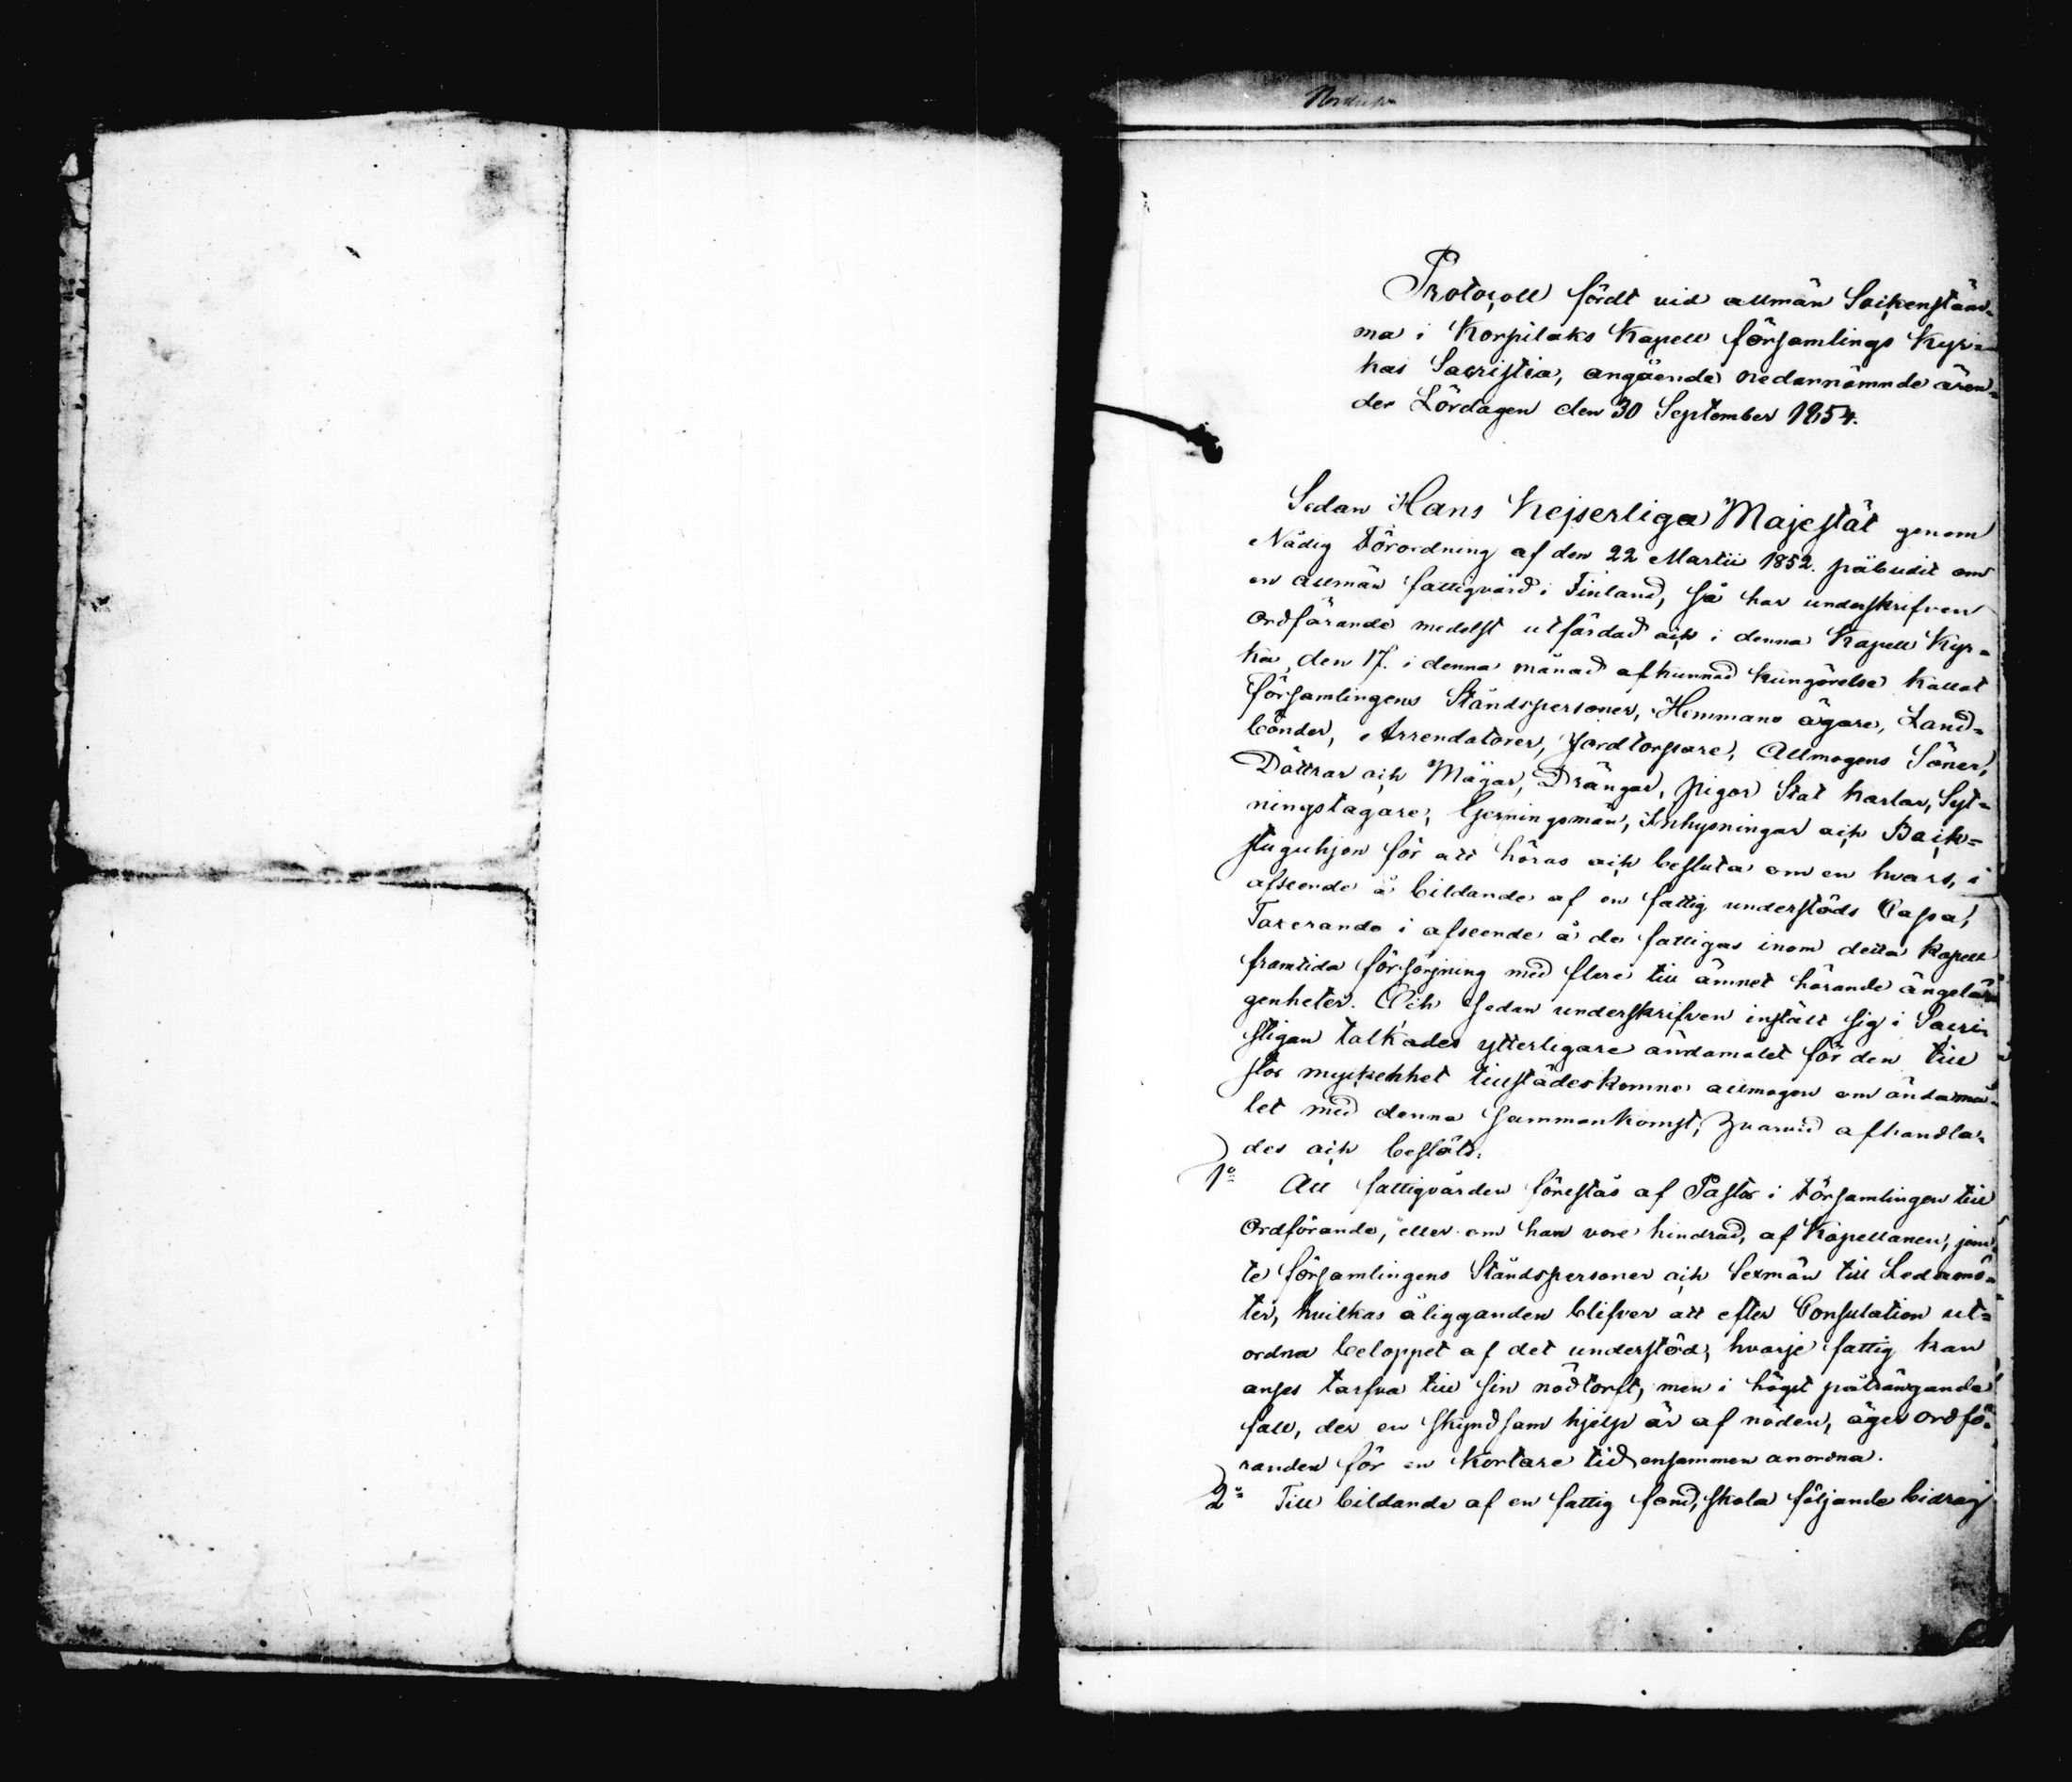 Protocoll fördt vid allmän Sockenstäm-
ma i Korpilaks Kapell församlings Kyr-
kas Sacristia, angående nedannämnde ären-
der Lördagen den 30 September 1854.
Sedan Hans Kejserliga Majestät genom
Nådig Förordning af den 22 Martii 1852. påbudit om
en allmän fattigvård i Finland, så har underskrifven
Ordförande medelst utfärdad och i denna Kapell Kyr-
ka, den 17. i denna månad afkunnad kungörelse kallat
Församlingens Ståndspersoner, Hemmans ägare, Land-
bönder, Arrendatorer, Jordtorpare, Allmogens Söner,
Döttrar och Mågar, Drängar, Pigor Stat karlar, Syt-
ningstagare, Gerningsmän, Inhysningar och Back-
stuguhjon för att höras och besluta om en hvars, i
afseende å bildande af en fattig understöds Cassa,
Taxerande i afseende å de fattigas inom detta Kapell
framtida försörjning med flere till ämnet hörande angelä-
genheter. Och sedan underskrifven instält sig i Sacri-
stigan talkades ytterligare ändamålet för den till
stor myckehhet tillstädeskomne allmogen om ändamå-
let med denna sammankomst, hvarvid afhandla-
des och beslöts.
1o Att fattigvården förestås af Pastor i Församlingen till
Ordförande, eller om han vore hindrad, af Kapellanen, jem-
te församlingens Ståndspersoner och Sexmän till Ledamö-
ter, hvilkas åligganden blifver att efter Consulation ut-
ordna beloppet af det understöd, hvarje fattig kan
anses tarfva till sin nödtorft, men i högst påträngande
fall, der en skyndsam hjelp är af nöden, äger Ordfö-
randen för en kortare tid ensammen anordna.
2o Till bildande af en fattig fond, skola följande bidrag